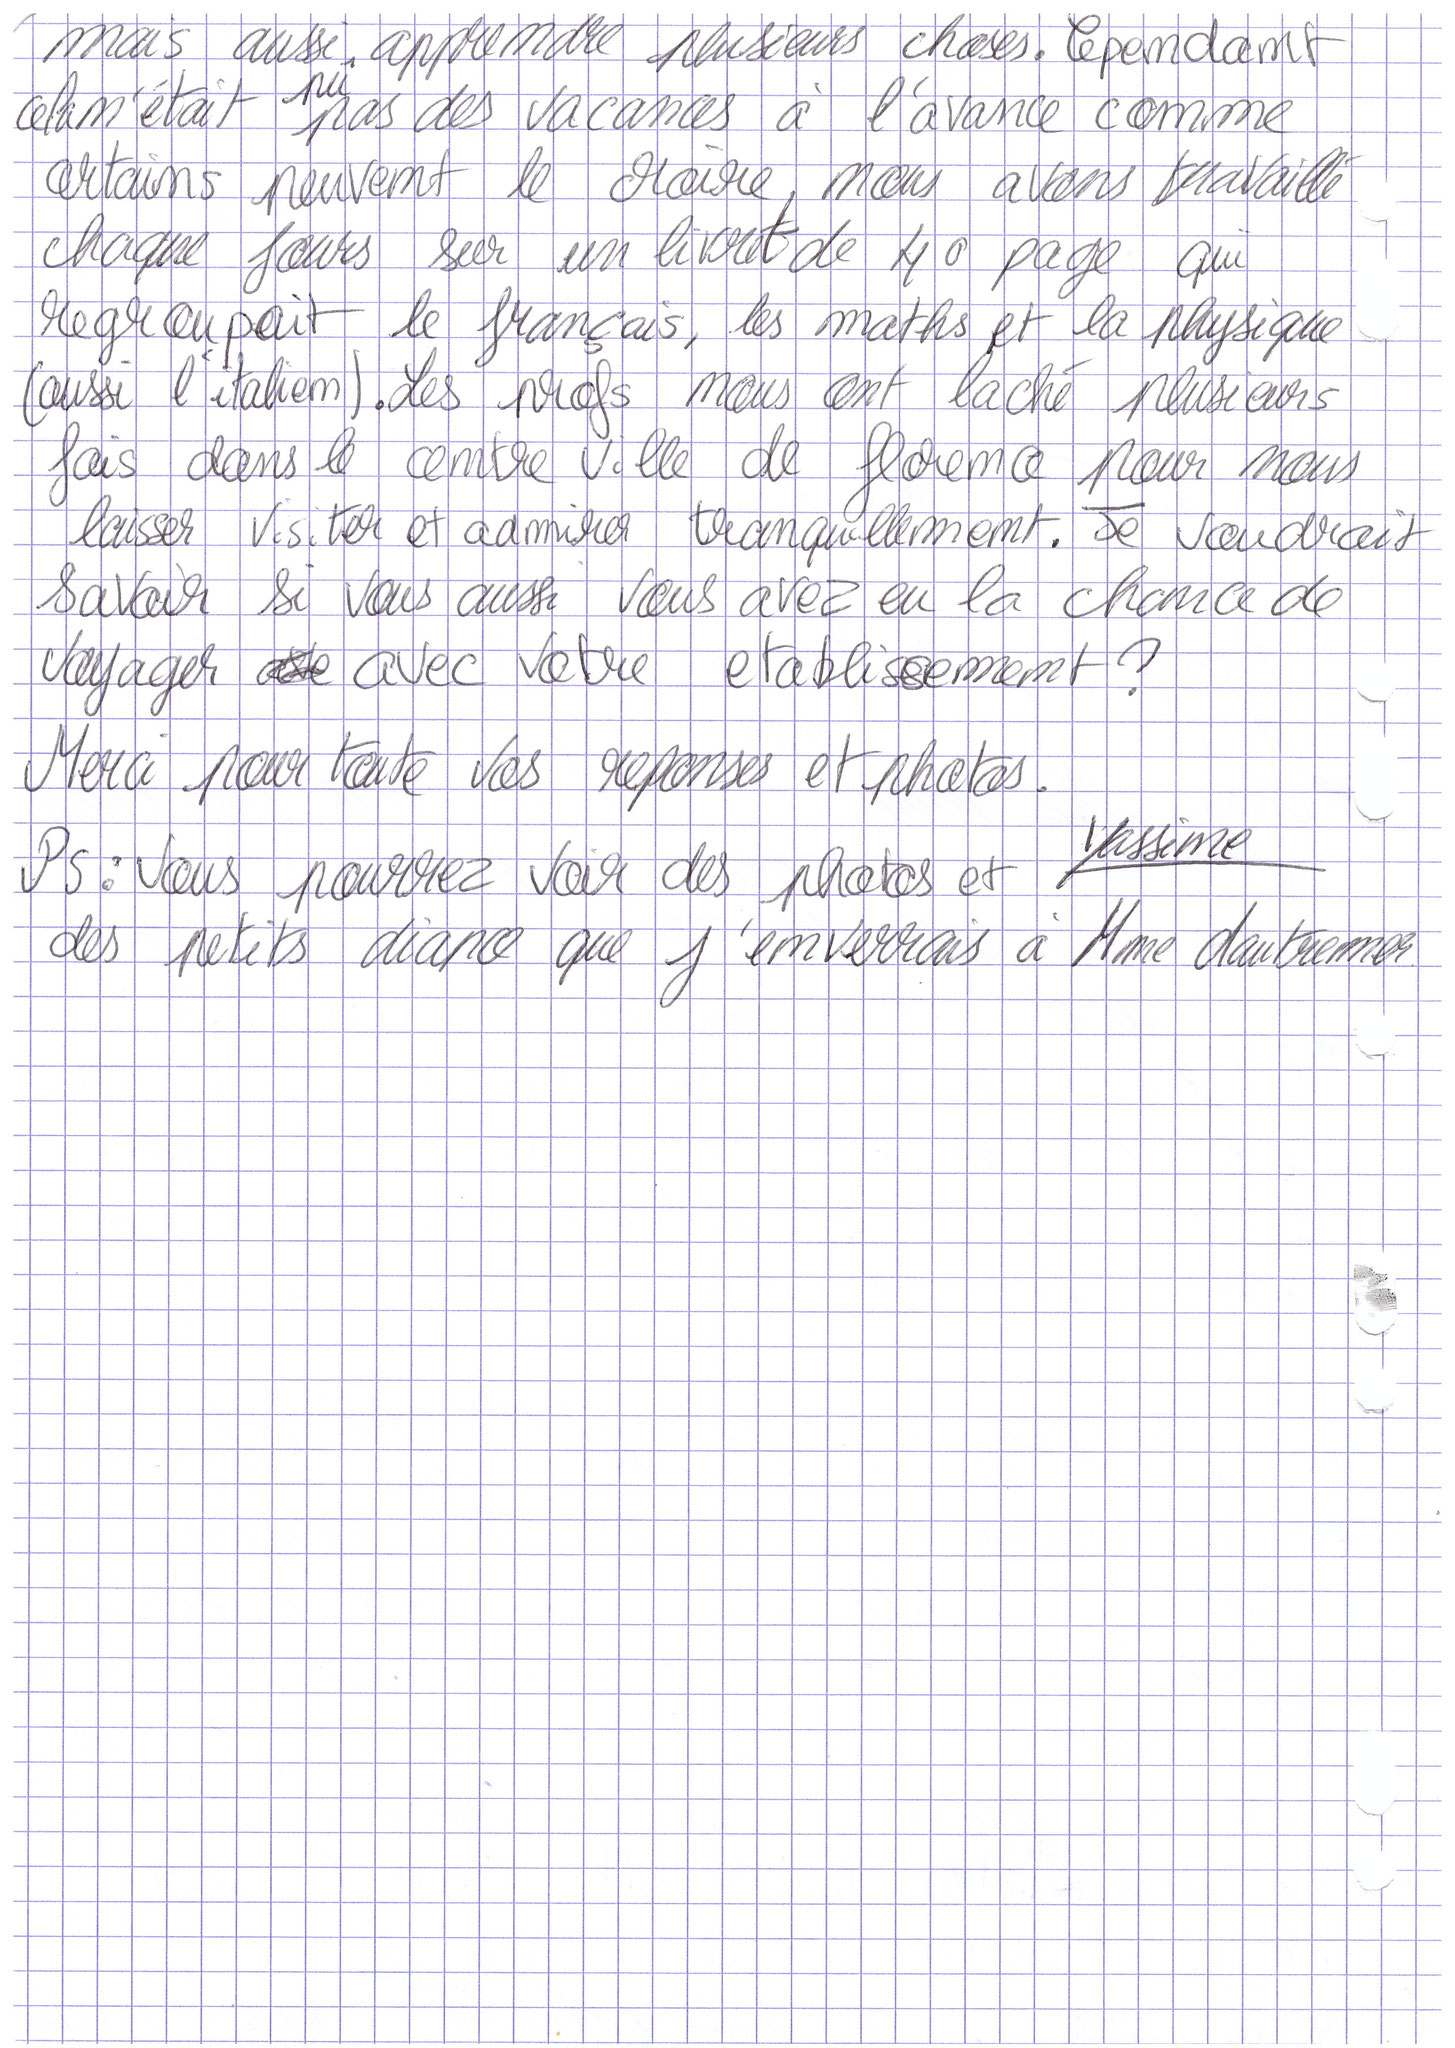 mais aussi, apprendre plusieurs choses. Cependant
cela n'était pas des vacances à l'avance comme
certains peuvent le croire, nous avons travaillé
chaque jours sur un livret de 40 page qui
regroupait le français, les maths et la physique
(aussi l'italien). Les profs nous ont laché plusieurs
fois dans le centre ville de florence pour nous
laisser visiter et admirer tranquillement. Je voudrait
savoir si vous aussi vous avez eu la chance de
voyager avec votre etablissement ?
Merci pour toute vos reponses et photos.
Yassine
Ps : Vous pourrez voir des photos et
des petits diapo que j'enverrais à Mme dautremer